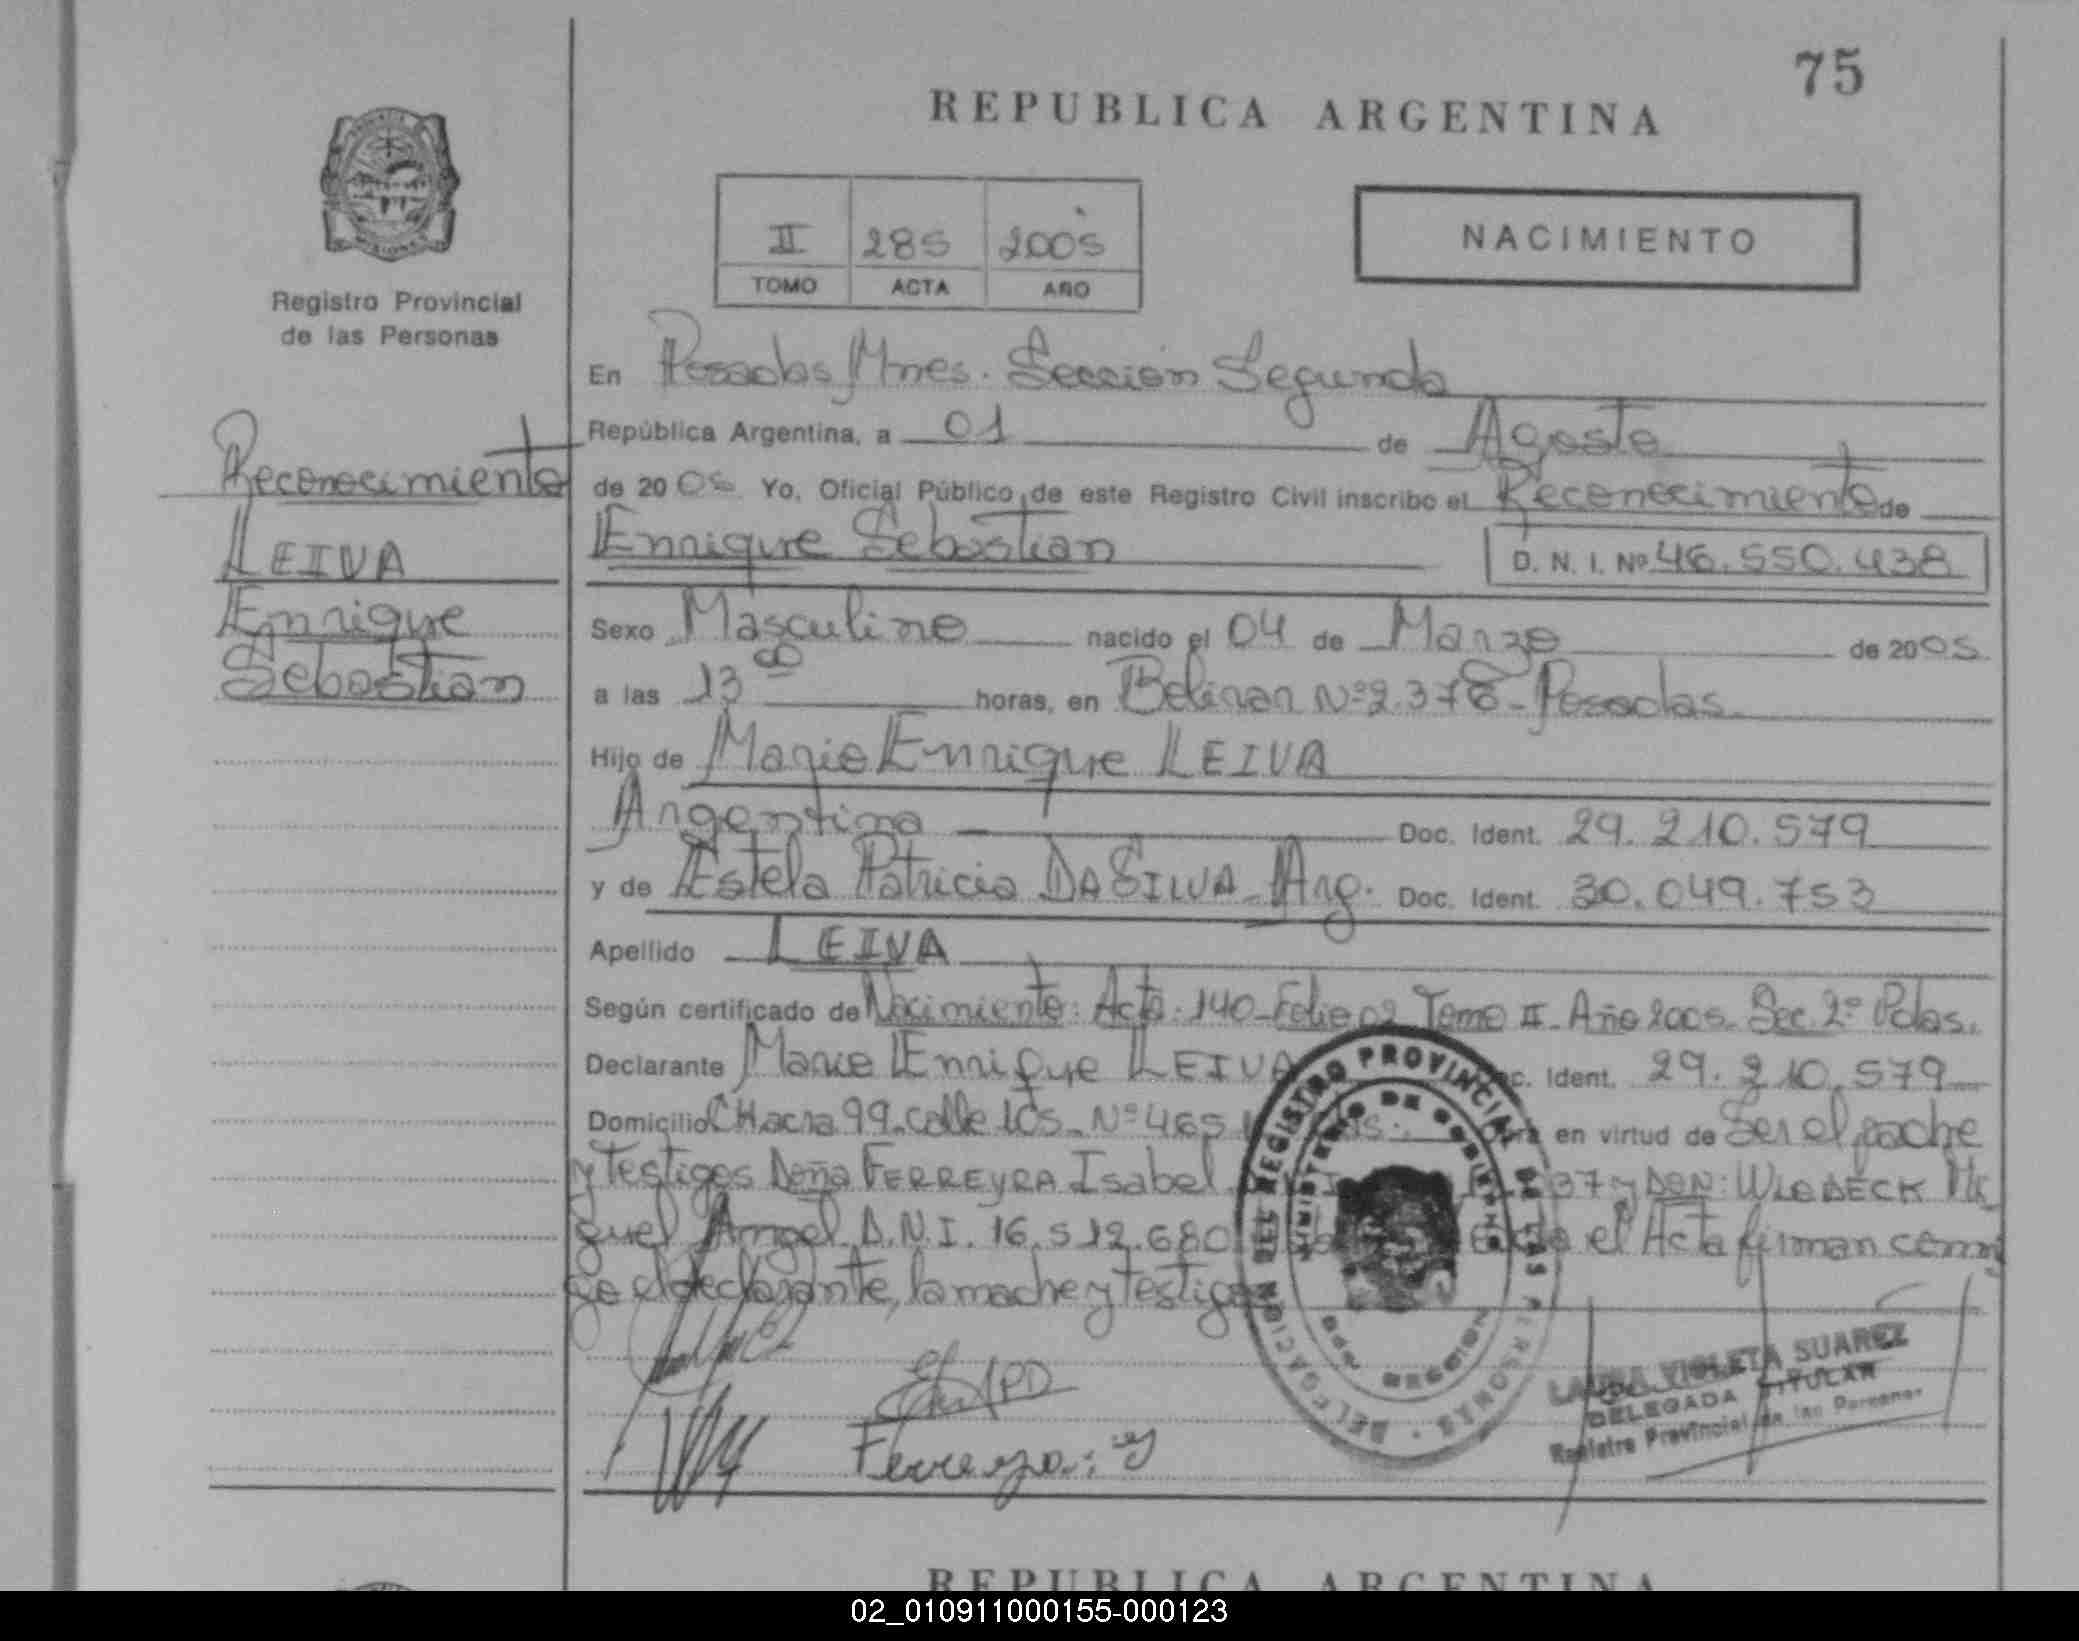 75
REPUBLICA ARGENTINA
II 285 2005
TOMO ACTA AÑO
NACIMIENTO
Registro Provincial
de las Personas
Reconocimiento
LEIVA
Enrique
Sebastian
En Posadas Mnes. Sección Segunda
República Argentina, a 01 de Agosto
de 2005 Yo, Oficial Público de este Registro Civil inscribo el Reconocimiento de
Enrique Sebastian D. N. I. Nº 46.550.438
Sexo Masculino nacido el 04 de Marzo de 2005
a las 13 horas, en Bolivar Nº 2.376 - Posadas.
Hijo de Mario Enrique LEIVA
Argentina Doc. Ident. 29.210.579
y de Estela Patricia DA SILVA - Arg. Doc. Ident. 30.049.753
Apellido LEIVA
Según certificado de Nacimiento: Acta: 140 - Folio 02 Tomo II - Año 2005 - Sec. 2º Pdas.
Declarante Mario Enrique LEIVA Ident. 29.210.579
Domicilio CHacra 99 - calle 105 - Nº 465 en virtud de Ser el padre
y Testigos Doña FERREYRA Isabel 37 y DON: WLOBECK Mi
guel Angel D.N.I. 16.512.680 el Acta firman conm
go el declarante, la madre y testigos
Ferreyra
DELEGACION DEL REGISTRO PROVINCIAL DE LAS PERSONAS
MINISTERIO DE GOBIERNO
MISIONES
LAURA VIOLETA SUAREZ
DELEGADA TITULAR
Registro Provincial de las Personas
REPUBLICA ARGENTINA
02_010911000155-000123